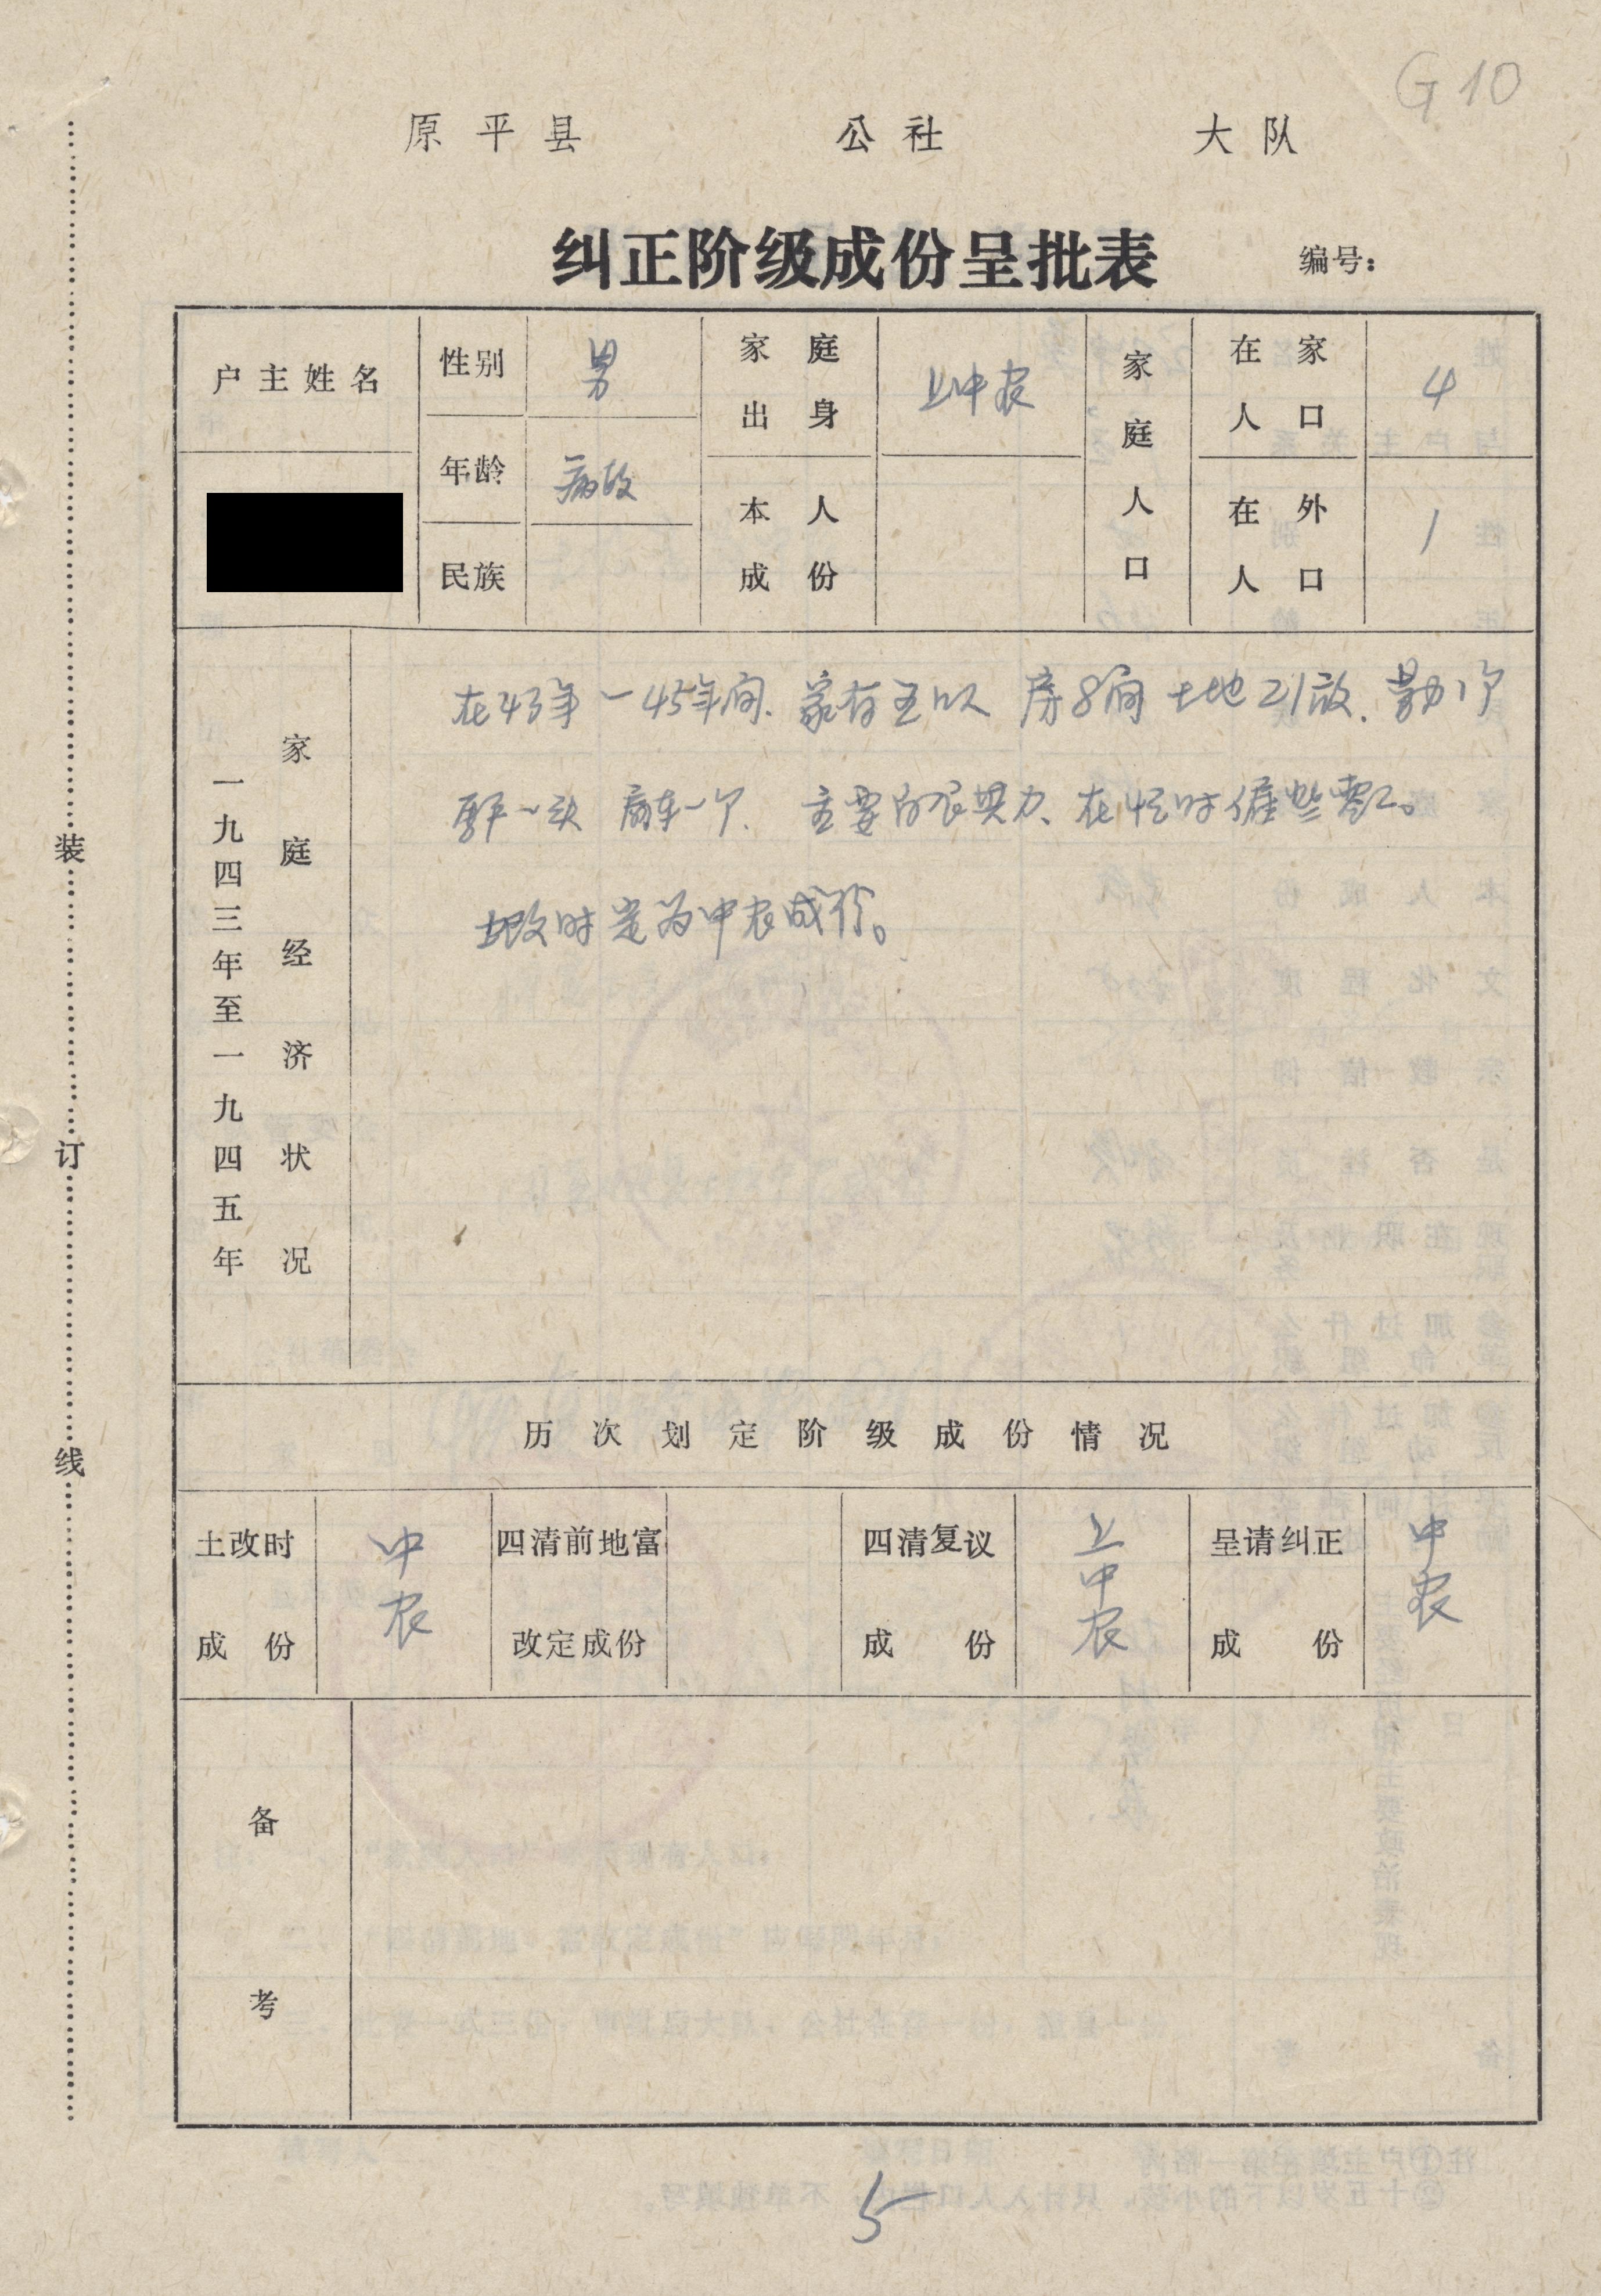 G 10
原平县 公社 大队
纠正阶级成份呈批表 编号：
户主姓名
性别 男
年龄 病故
民族
家庭出身 上中农
本人成份
家庭人口
在家人口 4
在外人口 1
一九四三年至一九四五年家庭经济状况
在43年一45年间、家有五口人 房8间 土地21亩、劳力1个
一头 车一个、主要 在忙时雇些零工。
土改时定为中农成份。
历次划定阶级成份情况
土改时成份 中农
四清前地富改定成份
四清复议成份 上中农
呈请纠正成份 中农
备考
装订线
5